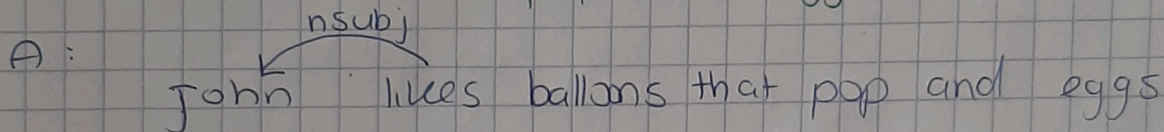 nsubj
A:
John likes ballons that pop and eggs